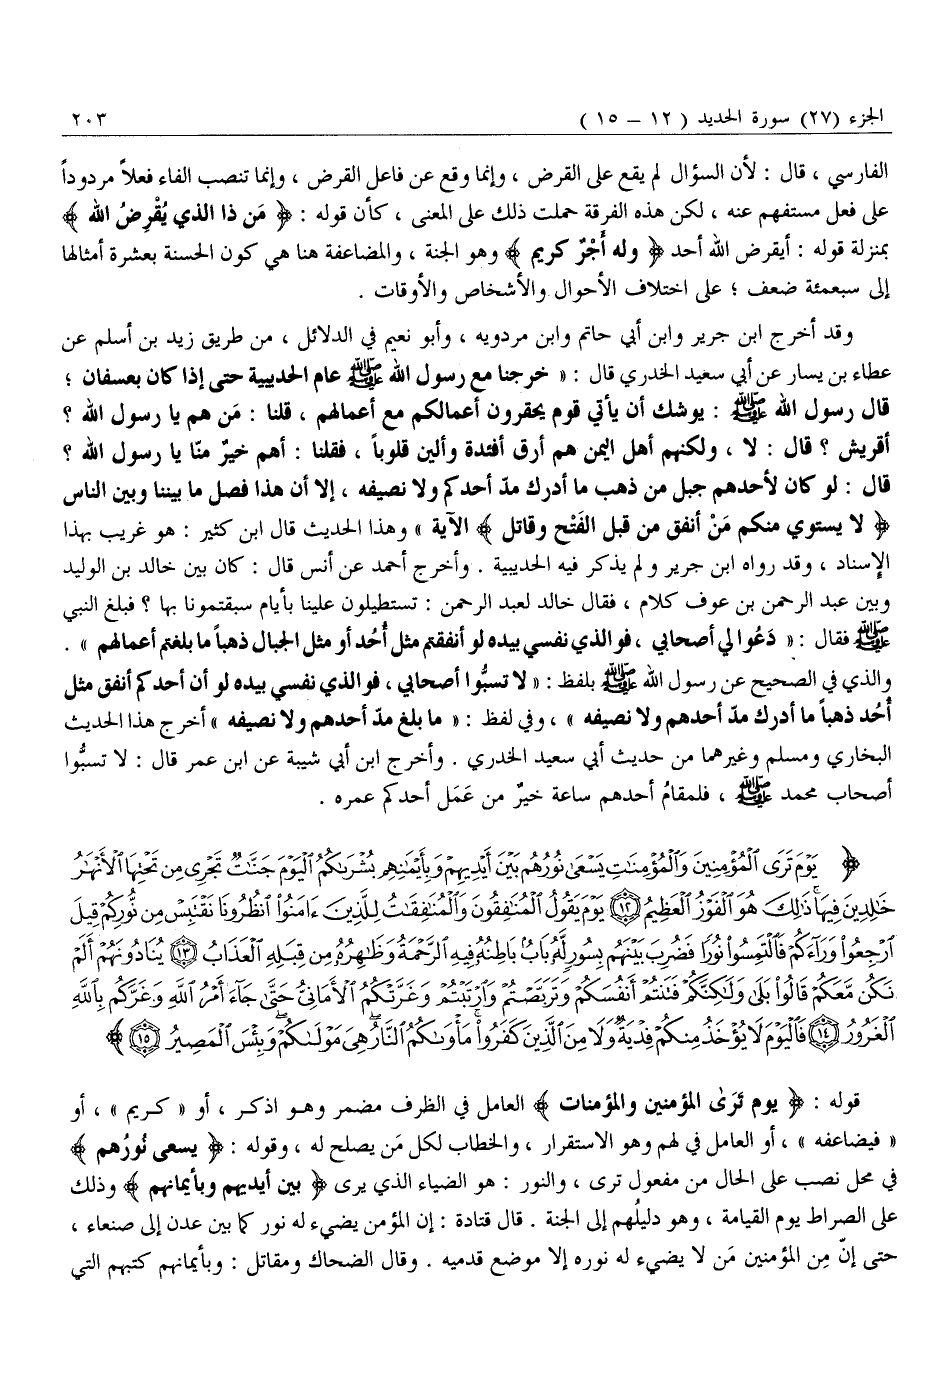 الجزء (٢٧) سورة الحديد ( ١٢ – ١٥ ) ٢٠٣
الفارسي ، قال : لأن السؤال لم يقع على القرض ، وإنما وقع عن فاعل القرض ، وإنما تنصب الفاء فعلاً مردوداً
على فعل مستفهم عنه ، لكن هذه الفرقة حملت ذلك على المعنى ، كأن قوله : ﴿ مَن ذا الذي يُقْرِضُ الله ﴾
بمنزلة قوله : أيقرض الله أحد ﴿ وله أَجْرٌ كريم ﴾ وهو الجنة ، والمضاعفة هنا هي كون الحسنة بعشرة أمثالها
إلى سبعمئة ضعف ؛ على اختلاف الأحوال والأشخاص والأوقات .
وقد أخرج ابن جرير وابن أبي حاتم وابن مردويه ، وأبو نعيم في الدلائل ، من طريق زيد بن أسلم عن
عطاء بن يسار عن أبي سعيد الخدري قال : « خرجنا مع رسول الله ﷺ عام الحديبية حتى إذا كان بعسفان ؛
قال رسول الله ﷺ : يوشك أن يأتي قوم يحقرون أعمالكم مع أعمالهم ، قلنا : مَن هم يا رسول الله ؟
أقريش ؟ قال : لا ، ولكنهم أهل اليمن هم أرق أفئدة وألين قلوباً ، فقلنا : أهم خيرٌ منّا يا رسول الله ؟
قال : لو كان لأحدهم جبل من ذهب ما أدرك مدّ أحدكم ولا نصيفه ، إلا أن هذا فصل ما بيننا وبين الناس
﴿ لا يستوي منكم مَنْ أنفق من قبل الفَتْح وقاتل ﴾ الآية » وهذا الحديث قال ابن كثير : هو غريب بهذا
الإسناد ، وقد رواه ابن جرير ولم يذكر فيه الحديبية . وأخرج أحمد عن أنس قال : كان بين خالد بن الوليد
وبين عبد الرحمن بن عوف كلام ، فقال خالد لعبد الرحمن : تستطيلون علينا بأيام سبقتمونا بها ؟ فبلغ النبي
ﷺ فقال : « دَعُوا لي أصحابي ، فوالذي نفسي بيده لو أنفقتم مثل أُحُد أو مثل الجبال ذهباً ما بلغتم أعمالهم » .
والذي في الصحيح عن رسول الله ﷺ بلفظ : « لا تسبُّوا أصحابي ، فوالذي نفسي بيده لو أن أحدكم أنفق مثل
أُحُد ذهباً ما أدرك مدّ أحدهم ولا نصيفه » ، وفي لفظ : « ما بلغ مدّ أحدهم ولا نصيفه » أخرج هذا الحديث
البخاري ومسلم وغيرهما من حديث أبي سعيد الخدري . وأخرج ابن أبي شيبة عن ابن عمر قال : لا تسبُّوا
أصحاب محمد ﷺ ، فلمقامُ أحدهم ساعة خيرٌ من عَمَل أحدكم عمره .
﴿ يَوْمَ تَرَى الْمُؤْمِنِينَ وَالْمُؤْمِنَاتِ يَسْعَى نُورُهُم بَيْنَ أَيْدِيهِمْ وَبِأَيْمَانِهِم بُشْرَاكُمُ الْيَوْمَ جَنَّاتٌ تَجْرِي مِن تَحْتِهَا الْأَنْهَارُ
خَالِدِينَ فِيهَا ذَالِكَ هُوَ الْفَوْزُ الْعَظِيمُ ١٢ يَوْمَ يَقُولُ الْمُنَافِقُونَ وَالْمُنَافِقَاتُ لِلَّذِينَ ءَامَنُوا انظُرُونَا نَقْتَبِسْ مِن نُّورِكُمْ قِيلَ
ارْجِعُوا وَرَاءَكُمْ فَالْتَمِسُوا نُورًا فَضُرِبَ بَيْنَهُم بِسُورٍ لَّهُ بَابٌ بَاطِنُهُ فِيهِ الرَّحْمَةُ وَظَاهِرُهُ مِن قِبَلِهِ الْعَذَابُ ١٣ يُنَادُونَهُمْ أَلَمْ
نَكُن مَّعَكُمْ قَالُوا بَلَى وَلَاكِنَّكُمْ فَتَنتُمْ أَنفُسَكُمْ وَتَرَبَّصْتُمْ وَارْتَبْتُمْ وَغَرَّتْكُمُ الْأَمَانِيُّ حَتَّى جَاءَ أَمْرُ اللَّهِ وَغَرَّكُم بِاللَّهِ
الْغَرُورُ ١٤ فَالْيَوْمَ لَا يُؤْخَذُ مِنكُمْ فِدْيَةٌ وَلَا مِنَ الَّذِينَ كَفَرُوا مَأْوَاكُمُ النَّارُ هِيَ مَوْلَاكُمْ وَبِئْسَ الْمَصِيرُ ١٥ ﴾
قوله : ﴿ يوم تَرَىٰ المؤمنين والمؤمنات ﴾ العامل في الظرف مضمر وهو اذكر ، أو « كريم » ، أو
« فيضاعفه » ، أو العامل في لهم وهو الاستقرار ، والخطاب لكل مَن يصلح له ، وقوله : ﴿ يسعى نُورُهم ﴾
في محل نصب على الحال من مفعول ترى ، والنور : هو الضياء الذي يرى ﴿ بين أيديهم وبأيمانهم ﴾ وذلك
على الصراط يوم القيامة ، وهو دليلُهم إلى الجنة . قال قتادة : إن المؤمن يضيء له نور كما بين عدن إلى صنعاء ،
حتى إنّ مِن المؤمنين مَن لا يضيء له نوره إلا موضع قدميه . وقال الضحاك ومقاتل : وبأيمانهم كتبهم التي